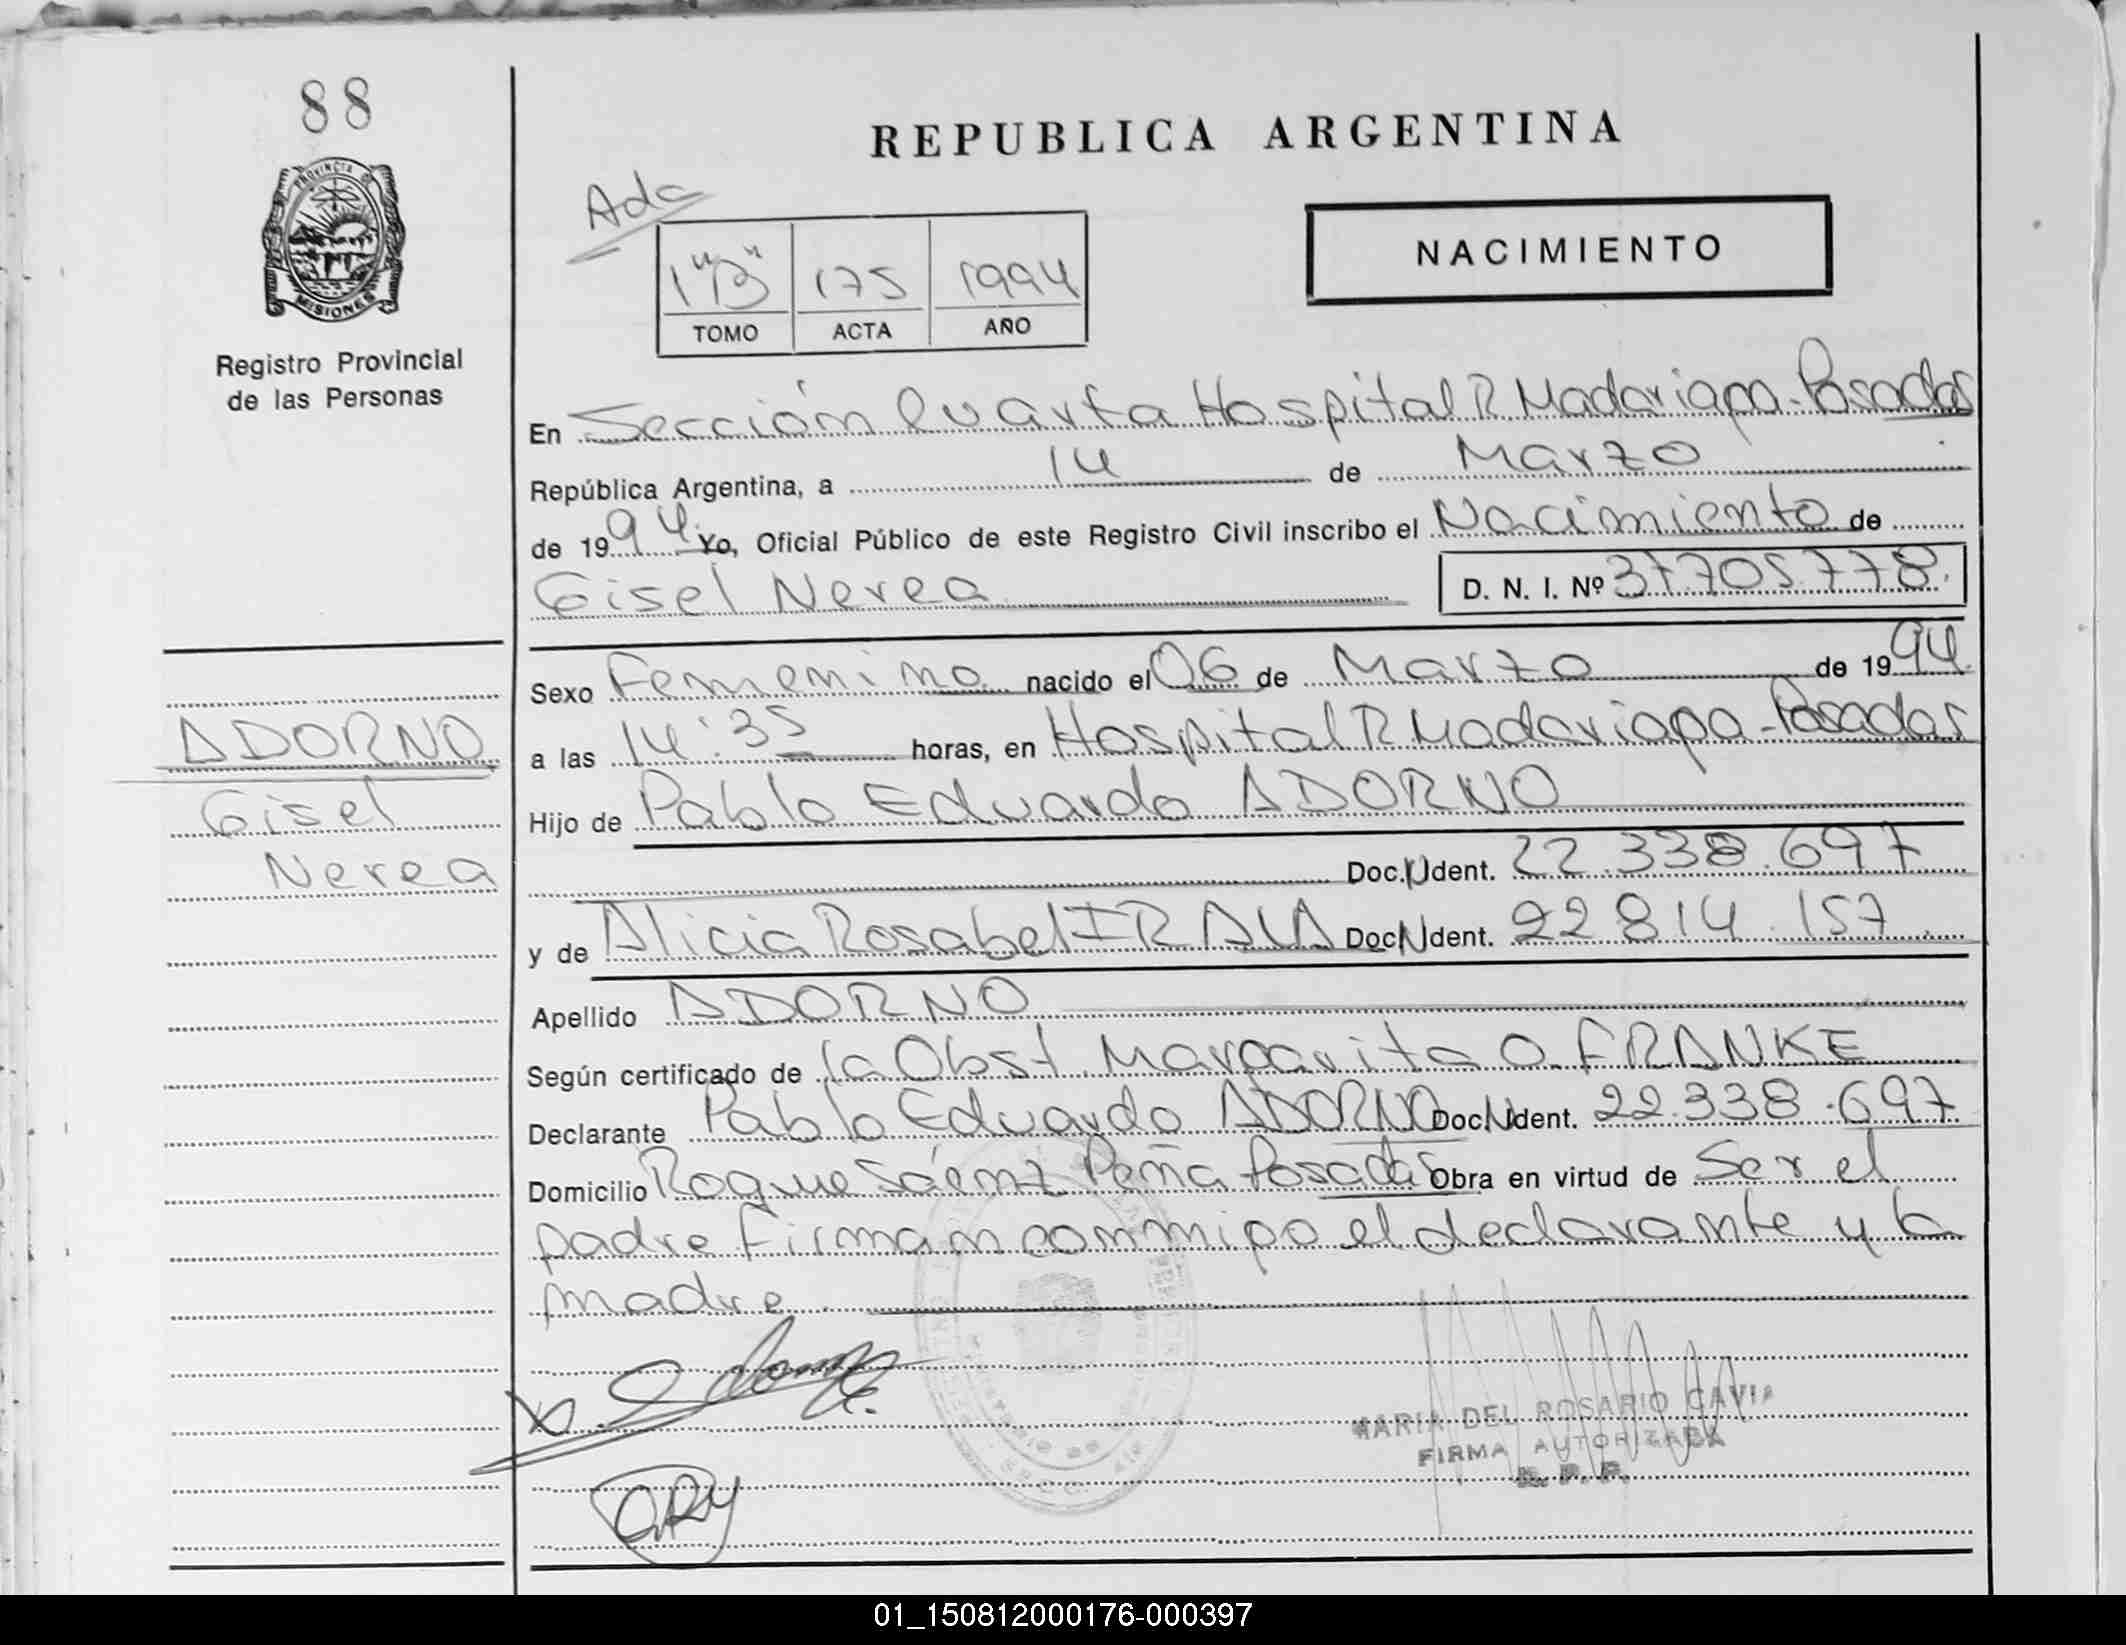 88
PROVINCIA D
MISIONES
Registro Provincial
de las Personas
REPUBLICA ARGENTINA
Ada
NACIMIENTO
1 "B" 175 1994
TOMO ACTA AÑO
En Sección Cuarta Hospital R Madariaga - Posadas
República Argentina, a 14 de Marzo
de 1994 Yo, Oficial Público de este Registro Civil inscribo el Nacimiento de
Gisel Nerea D. N. I. Nº 37.705.778.
Sexo Femenino nacido el 06 de Marzo de 1994
a las 14:35 horas, en Hospital R Madariaga - Posadas
Hijo de Pablo Eduardo ADORNO
Doc. Ident. 22.338.697
y de Alicia Rosabel IRALA Doc. Ident. 22 814.157
Apellido ADORNO
Según certificado de la Obst. Margarita O. FRANKE
Declarante Pablo Eduardo ADORNO Doc. Ident. 22.338.697
Domicilio Roque Sáenz Peña Posadas Obra en virtud de Ser el
padre Firman conmigo el declarante y la
madre
ADORNO
Gisel
Nerea
MARIA DEL ROSARIO CAVIA
FIRMA AUTORIZADA
R. P. P.
01_150812000176-000397